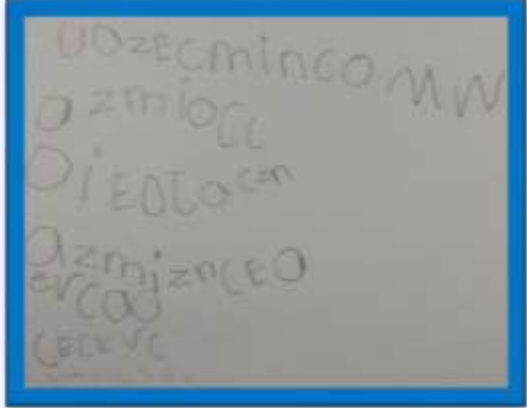 OOzECmincOMW
OzmioCC
OiEOTaczn
azmiznCEO
ErCao
CECErC